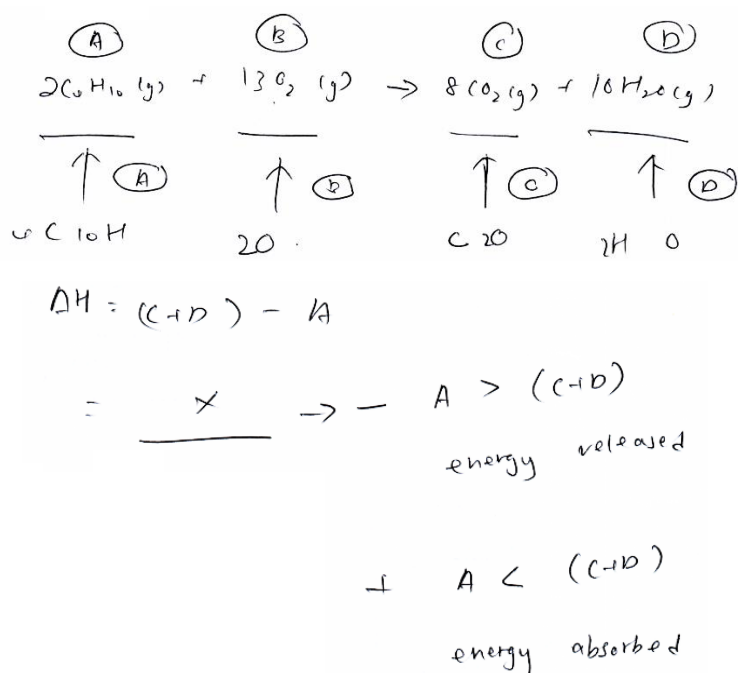 A B C D
2C4H10 (g) + 13O2 (g) → 8CO2 (g) + 10H2O (g)
↑ A ↑ B ↑ C ↑ D
4C 10H 2O C 2O 2H O
ΔH = (C+D) - A
= x → - A > (C+D)
energy released
+ A < (C+D)
energy absorbed